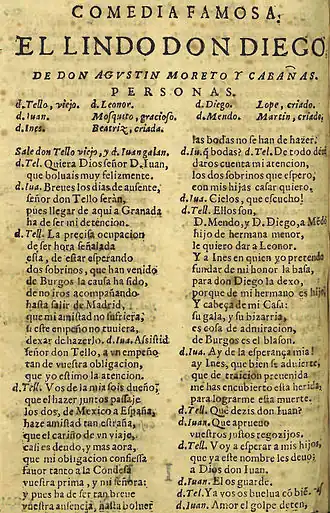 COMEDIA FAMOSA,
EL LINDO DON DIEGO
DE DON AGVSTIN MORETO Y CABAÑAS.
PERSONAS.
d. Tello, viejo. d. Leonor. d. Diego. Lope, criado.
d. Iuan. Mosquito, gracioso. d. Mendo. Martin, criado.
d. Ines. Beatriz, criada.
Sale don Tello viejo, y d. Iuan galan.
d. Tel. Quiera Dios señor D. Iuan,
que boluais muy felizmente.
d. Iua. Breues los dias de ausente,
señor don Tello serán,
pues llegar de aqui a Granada
ha de ser mi detencion.
d. Tell. La precisa ocupacion
de ser hora señalada
esta, de estar esperando
dos sobrinos, que han venido
de Burgos la causa ha sido,
de no iros acompañando
hasta salir de Madrid,
que mi amistad no sufriera,
si este empeño no tuuiera,
dexar de hazerlo. d. Iua. Assistid
señor don Tello, a vn empeño
tan de vuestra obligacion,
que yo estimo la atencion.
d. Tell. Vos de la mia sois dueño;
que el hazer juntos passaje
los dos, de Mexico a España,
haze amistad tan estraña,
que el cariño de vn viaje,
casi es deudo, y mas aora,
que mi obligacion confiessa
fauor tanto a la Condesa
vuestra prima, y mi señora:
y pues ha de ser tan breue
vuestra ausencia, hasta boluer
las bodas no se han de hazer.
d. Iu. q̃ bodas? d. Tel. De todo deo
daros cuenta mi atencion,
los dos sobrinos que espero,
con mis hijas casar quiero,
d. Iua. Cielos, que escucho!
d. Tell. Ellos son,
D. Mendo, y D. Diego, a Mẽdo
hijo de hermana menor,
le quiero dar a Leonor.
Y a Ines en quien yo pretendo
fundar de mi honor la basa,
para don Diego la dexo,
porque de mi hermano es hijo
Y cabeça de mi Casa:
su gala, y su bizarria,
es cosa de admiracion,
de Burgos es el blason.
d. Iua. Ay de la esperança mia!
ay Ines, que bien se aduierte,
que de traicion preuenida
me has encubierto esta herida
para lograrme esta muerte.
d. Tell. Què dezis don Iuan?
d. Iuan. Que aprueuo
vuestros justos regozijos.
d. Tell. Voy a esperar a mis hijos,
que ya este nombre les deuo;
a Dios don Iuan.
d. Iuan. El os guarde.
d. Tel. Ya vos os buelua cõ biẽ.
d. Iuan. Amor el golpe deten,